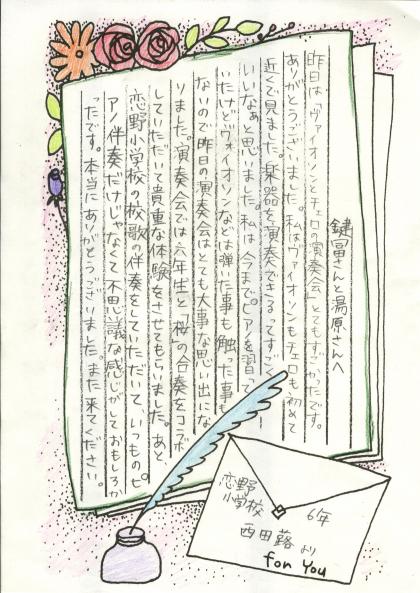 鍵冨さんと湯原さんへ
昨日は「ヴァイオリンとチェロの演奏会」とてもすごかったです。
ありがとうございました。私はヴァイオリンもチェロも初めて
近くで見ました。楽器を演奏できるってすごく
いいなぁと思いました。私は今までピアノを習って
いたけどヴァイオリンなどは弾いた事も触った事も
ないので昨日の演奏会はとても大事な思い出にな
りました。演奏会では六年生と「桜」の合奏をコラボ
していただいて貴重な体験をさせてもらいました。あと
恋野小学校の校歌の伴奏をしていただいて、いつものピ
アノ伴奏だけじゃなくて不思議な感じがしておもしろか
ったです。本当にありがとうございました。また来てください。
恋野
小学校
6年
西田蕗より
for You